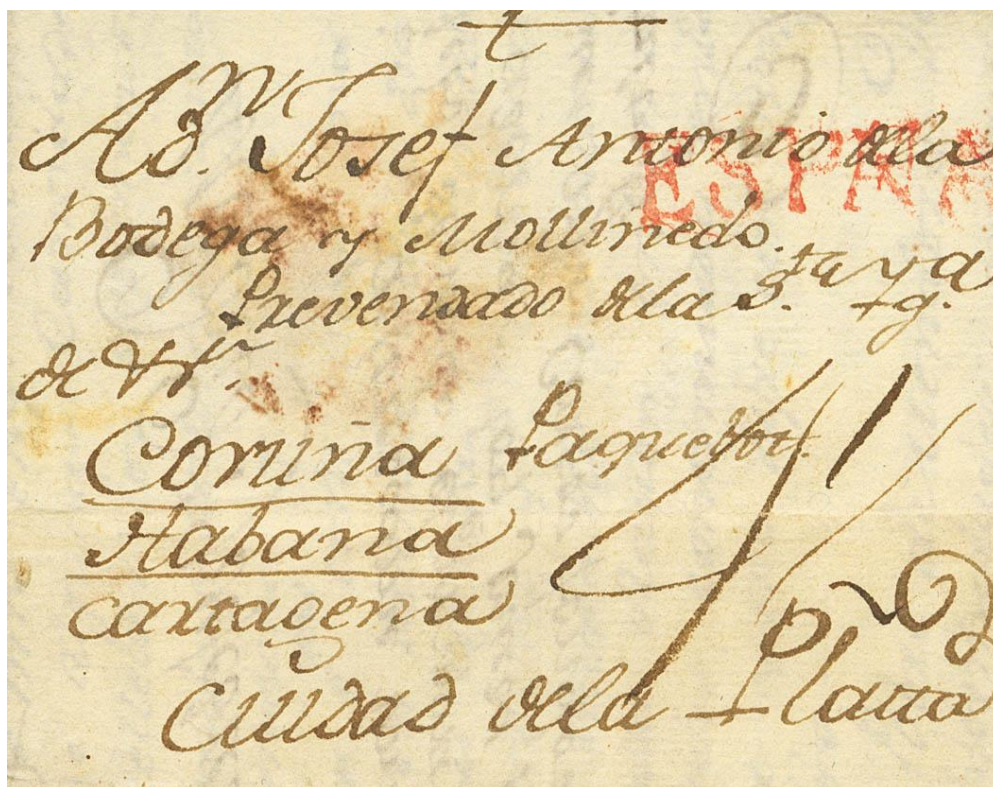 A Dn. Josef Antonio dela
ESPAÑA
Bodega y Mollinedo.
Prevendado dela Sta. Yga.
de
Coruña Paquebot.
Habana
Cartagena
Ciudad dela Platta